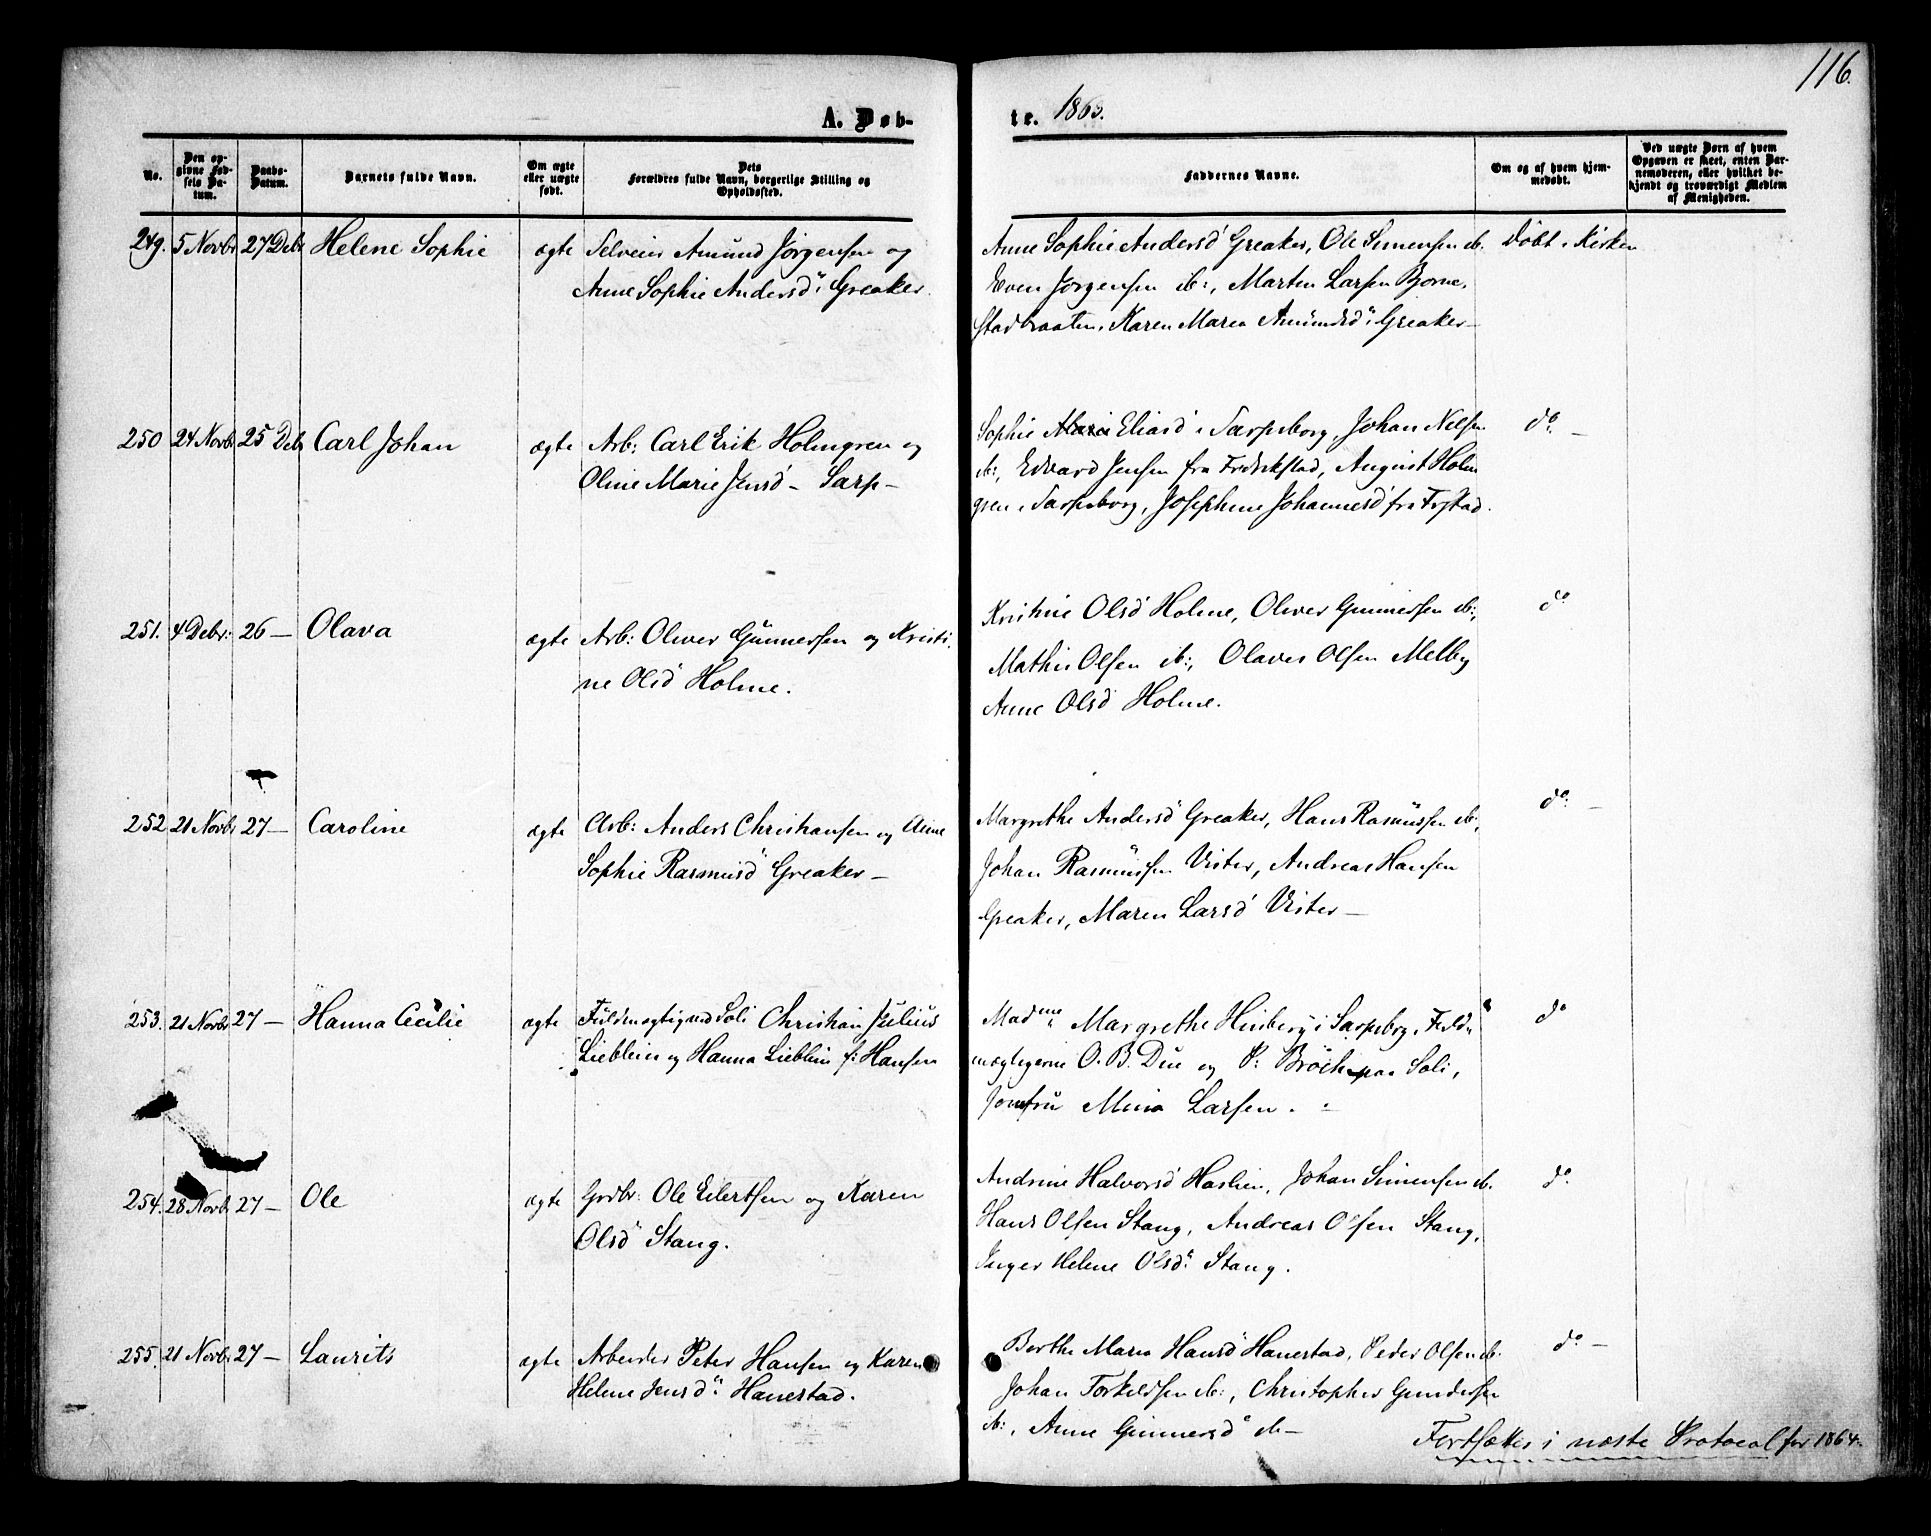 116.
A. Døb-
te. 1863.
No.
Den op-
givne Fød-
sels Da-
tum.
Daabs-
Datum.
Barnets fulde Navn.
Om ægte
eller uægte
født.
Dets
Forældres fulde Navn, borgerlige Stilling og
Opholdssted.
Faddernes Navne.
Om og af hvem hjem-
medøbt.
Ved uægte Børn af hvem
Opgaven er skeet, enten Bar-
nemoderen, eller hvilket be-
kjendt og troværdigt Medlem
af Menigheden.
249. 5 Novbr 27 Debr Helene Sophie ægte Selveier Amund Jørgensen og
Anne Sophie Andersd. Greaker.
Anne Sophie Andersd Greaker, Ole Simensen ib. Døbt i Kirken
Even Jørgensen ib:, Marten Larsen Borne,
stadbraaten, Karen Maren Amundsd. Greaker—
250 24 Novbr 25 Debr Carl Johan ægte Arb: Carl Erik Holmgren og
Oline Marie Jensd – Sarp–
Sophie Eliasd i Sarpsborg, Johan Nilsen do. –
ib:, Edvard Jensen fra Fredrikstad, August Holm
gren i Sarpsborg, Josephine Johannesd fra Frstad.
251. 4 Debr: 26 — Olava ægte Arb: Oliver Gunnersen og Kristi,
ne Olsd Holme.
Kristine Olsd Holme, Oliver Gunnersen ib:, do
Mathis Olsen ib:, Olaves Olsen Melby
Anne Olsd Holme.
252 21 Novbr 27 — Caroline ægte Arb: Anders Christiansen og Anne
Sophie Rasmusd Greaker –
Margrethe Andersd Greaker, Hans Rasmussen ib:, do: –
Johan Rasmussen Vister, Andreas Hansen
Greaker, Maren Larsd Vister –
253. 21 Novbr 27 — Hanna Cecilie ægte Fuldmægtig ved Soli Christian Julius
Lieblein og Hanna Lieblein f: Hansen
Madme Margrethe i Sarpsborg, Fuld do
mægtigerne O. B. Due og P: Bröch paa Soli,
Jomfru Mina Larsen.
254. 28 Novbr 27 — Ole ægte Grdbr: Ole Eilertsen og Karen
Olsd Stang.
Andrine Halvorsd Haslien, Johan Simensen ib. do.
Hans Olsen Stang, Andreas Olsen Stang,
Inger Helene Olsd. Stang.
255. 21 Novbr 27 — Laurits ægte Arbeider Peter Hansen og Karen
Helene Jensd. Hanestad.
Berthe Maria Hansd Hanestad, Peder Olsen ib. do –
Johan Torkildsen ib:, Christopher Gundersen
ib:, Anne Gunnersd ib –
Fortsættes i næste Protocol for 1864.